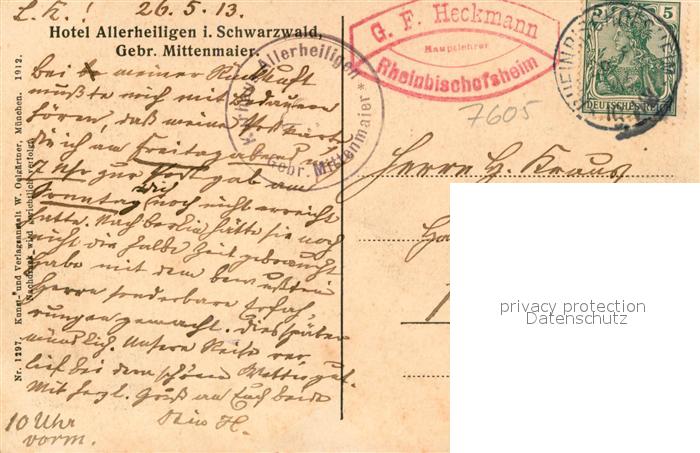 L. K.! 26.5.13.
Hotel Allerheiligen i. Schwarzwald,
Gebr. Mittenmaier.
bei meiner Rückkunft
mußte mich mit Bedauern
hören, daß meine Postkarte
die ich am Freitag abend
Uhr zur Post gab am
Sonntag Dich noch nicht erreicht
hatte. Nach Berlin hätte sie noch
nicht die halbe Zeit gebraucht
habe mit dem bewußten
Herrn sonderbare Erfah-
rungen gemacht. Dies später
mündlich. Unsere Reise ver-
lief bei dem schönen Wetter gut.
Mit herzl. Gruß an Euch beide
Dein H.
10 Uhr
vorm.
Nr. 1297. Kunst- und Verlagsanstalt W. Gaigärtner, München. 1912.
Nachdruck wird gerichtlich verfolgt
Hotel Allerheiligen
* Gebr. Mittenmaier *
G. F. Heckmann
Hauptlehrer
Rheinbischofsheim
7605
5
DEUTSCHES REICH
RHEINBISCHOFSHEIM
Herrn H. Kraus
privacy protection
Datenschutz